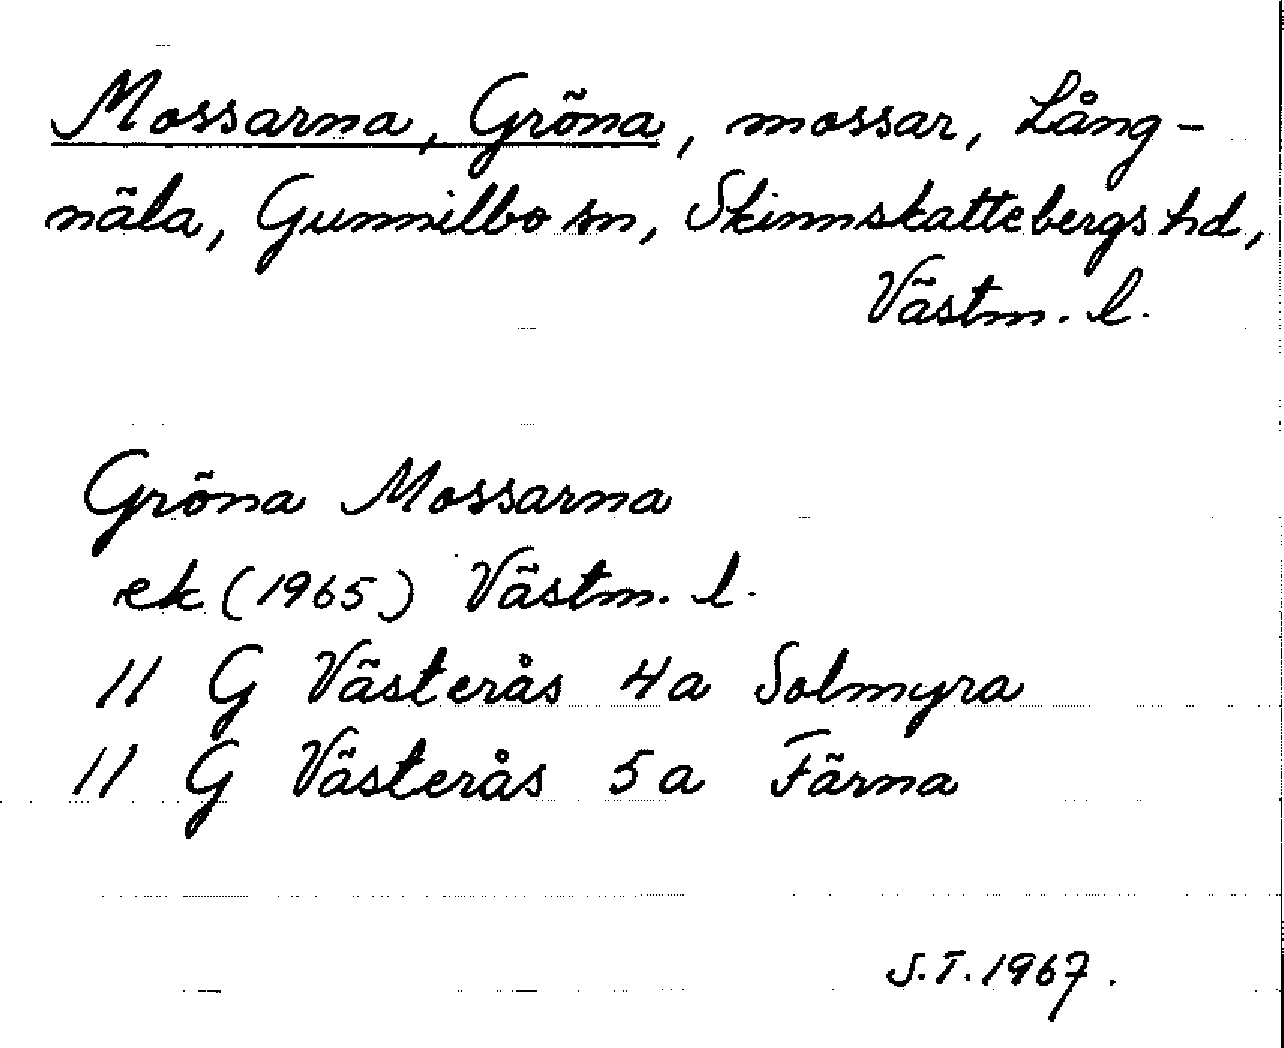 Mossarna, Gröna, mossar, Lång-
näla, Gunnilbo sn, Skinnskattebergs hd,
Västm. l.
Gröna Mossarna
ek (1965) Västm. l.
11 G Västerås 4a Solmyra
11 G Västerås 5a Färna
S.T. 1967.